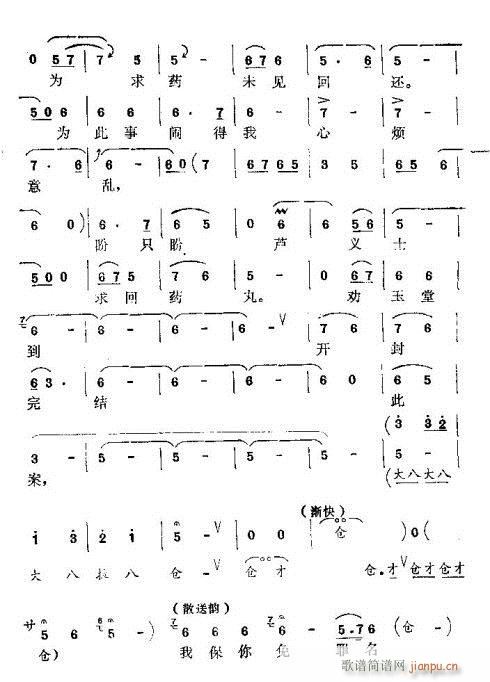 0 5 7 | 7 5 | 5 - | 6 7 6 | 5 . 6 | 5 -
为 求 药 未 见 回 还。
5 0 6 | 6 6 | 0 6 | 6 . 7 | 6 - | 6 -
为 此 事 闹 得 我 心 烦
7 . 6 | 6 - | 6 0 ( 7 | 6 7 6 5 | 3 5 | 6 5 6
意 乱,
6 0 ) | 6 . 7 | 6 5 | 0 6 | 5 6 | 5 -
盼 只 盼 芦 义 士
5 0 0 | 6 7 5 | 7 6 | 5 - | 0 6 7 | 6 -
求 回 药 丸。 劝 玉 堂
6 - | 6 - | 6 - | 6 - V | 7 6 | 7 6
到 开 封
6 3 . | 6 - | 6 - | 6 - | 6 0 | 6 5
完 结 此
( 3 3 2
3 - | 5 - | 5 - | 5 - | 5 - | 5 -
案, (大八大八
(渐快)
1 3 | 2 1 | 5 - V | 0 0 | 仓 ) 0 (
大 八 拉 八 仓 - 仓 才 仓.才 V 仓才仓才
(散送韵)
サ 5 6 6 5 - V 6 6 6 6 - 5 . 7 6 ( 仓 -
仓) 我 保 你 免 罪 名
歌谱简谱网
jianpu.cn